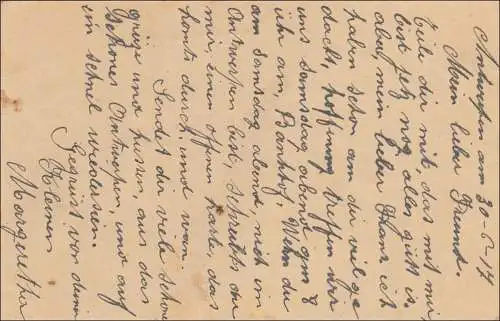 Antwerpen am 30-6-17
Mein lieber Freund.
Teile dir mit das mit mir
bist jetz nog alles gutt is.
aber, mein lieber Franz ich
habn schon an die
dacht, hoffnung treffen wir
uns samsdag abend am 8
uhr am, Banhof. Wehn du
am Samsdag abend, nich im
Antwerpen bist, schreibs du
mir, einen offnen karte, das
komts durch und wan.
Sendet dir viele schone
grüse und kussen, aus das
schones Antwerpen, und auf
ein schnel wiedersein.
Gegrust von deine
Kleinen
Margaretha